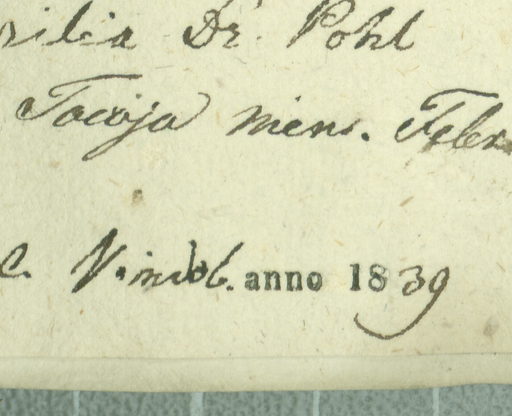 silia Dr. Pohl
Tocoja mens. Febr
c. Vindob. anno 1839